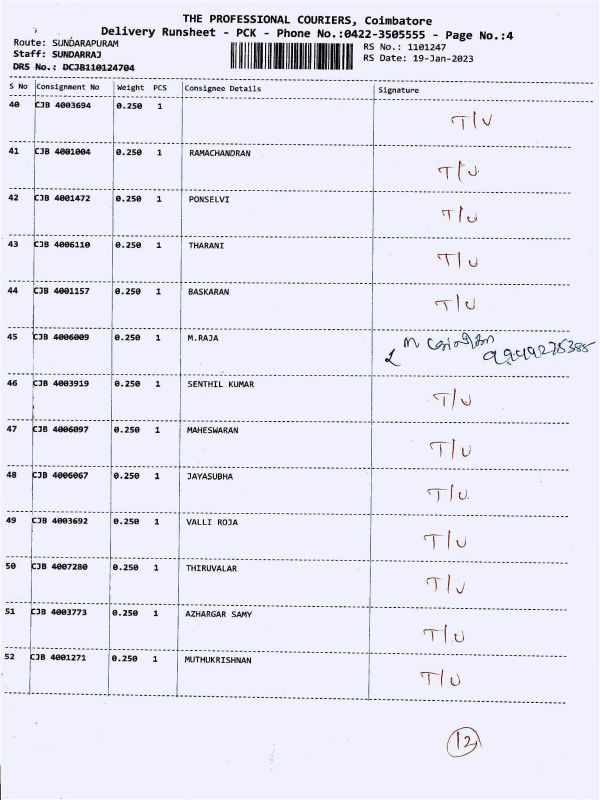 THE PROFESSIONAL COURIERS, Coimbatore
Delivery Runsheet - PCK - Phone No.:0422-3505555 - Page No.:4
Route: SUNDARAPURAM
RS No.: 1101247
Staff: SUNDARRAJ
RS Date: 19-Jan-2023
DRS No.: DCJB110124704
S No Consignment No Weight PCS Consignee Details Signature
40 CJB 4003694 0.250 1 T/U
41 CJB 4001004 0.250 1 RAMACHANDRAN T/U
42 CJB 4001472 0.250 1 PONSELVI T/U
43 CJB 4006110 0.250 1 THARANI T/U
44 CJB 4001157 0.250 1 BASKARAN T/U
45 CJB 4006009 0.250 1 M.RAJA
46 CJB 4003919 0.250 1 SENTHIL KUMAR T/U
47 CJB 4006097 0.250 1 MAHESWARAN T/U
48 CJB 4006067 0.250 1 JAYASUBHA T/U
49 CJB 4003692 0.250 1 VALLI ROJA T/U
50 CJB 4007280 0.250 1 THIRUVALAR T/U
51 CJB 4003773 0.250 1 AZHARGAR SAMY T/U
52 CJB 4001271 0.250 1 MUTHUKRISHNAN T/U
12